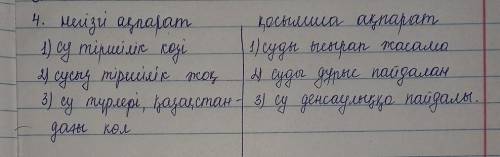 4. негізгі ақпарат қосымша ақпарат
1) су тіршілік көзі 1) суды ысырап жасама
2) сусыз тіршілік жоқ 2) суды дұрыс пайдалан
3) су түрлері, қазақстан- 3) су денсаулыққа пайдалы.
дағы көл